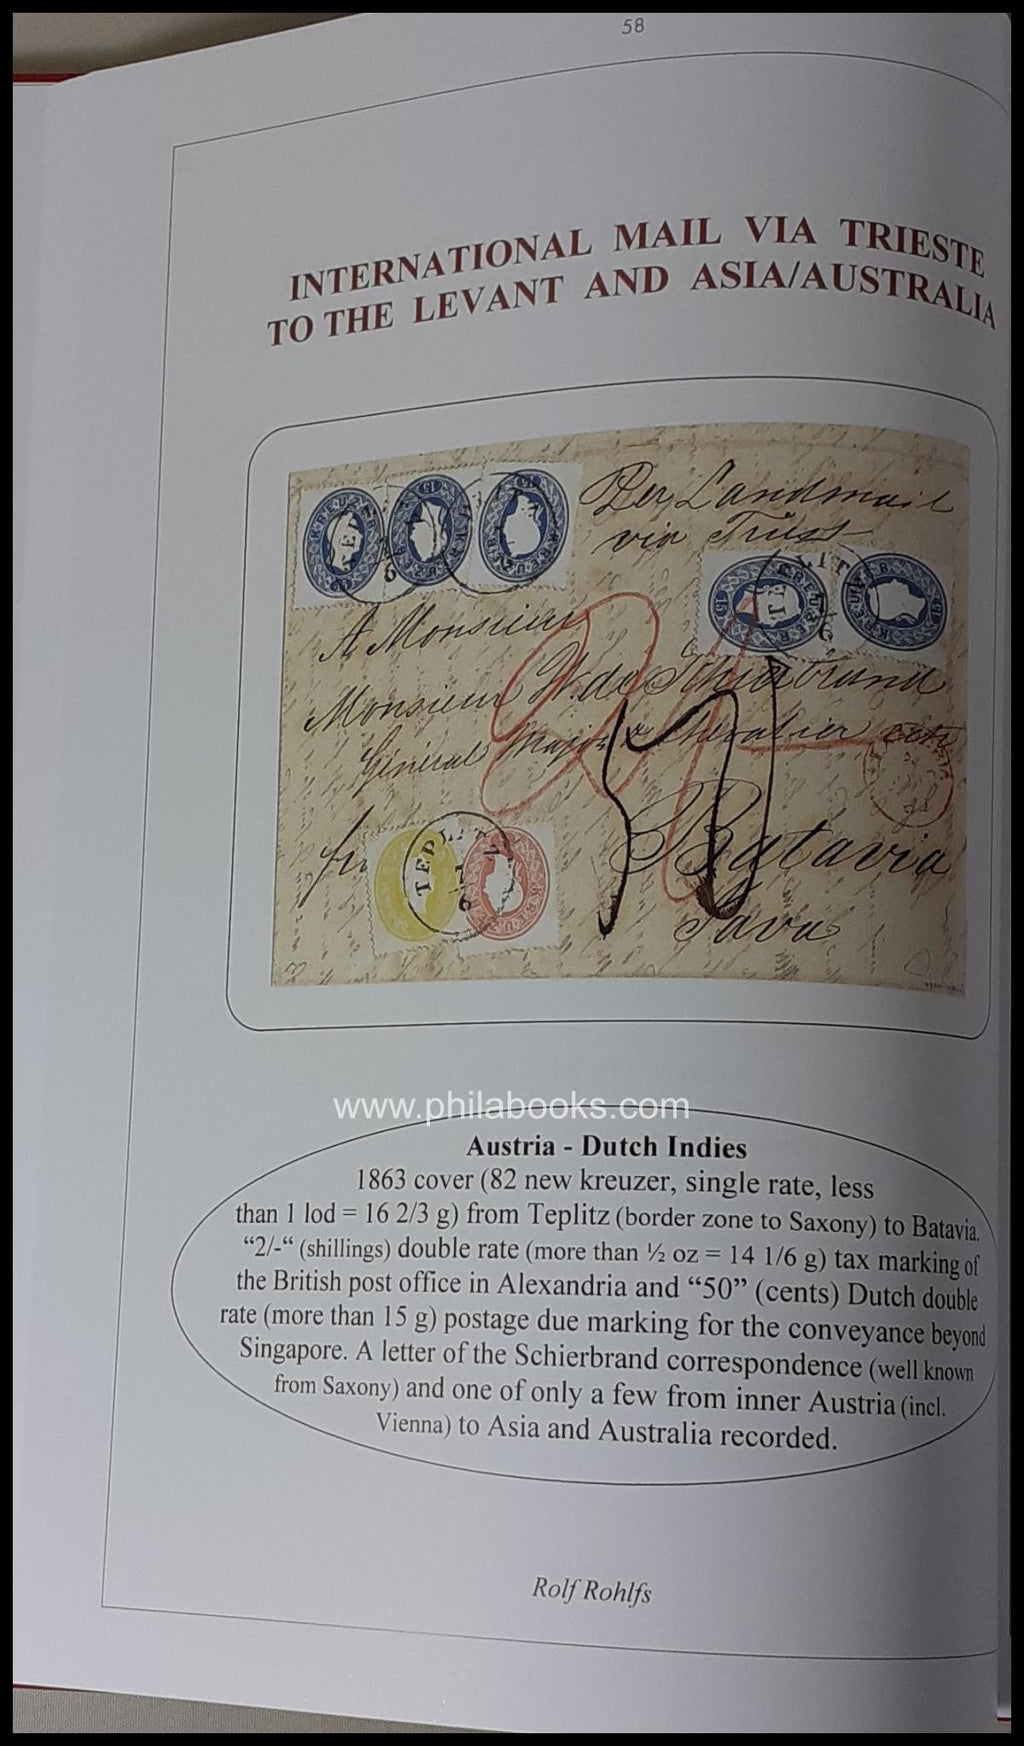 58
INTERNATIONAL MAIL VIA TRIESTE
TO THE LEVANT AND ASIA/AUSTRALIA
Per Landmail
via Triest
A Monsieur
Monsieur W. de Schierbrand
Général Major & Chevalier
Batavia
Java
TEPLITZ
www.philabooks.com
Austria - Dutch Indies
1863 cover (82 new kreuzer, single rate, less
than 1 lod = 16 2/3 g) from Teplitz (border zone to Saxony) to Batavia.
“2/-“ (shillings) double rate (more than ½ oz = 14 1/6 g) tax marking of
the British post office in Alexandria and “50” (cents) Dutch double
rate (more than 15 g) postage due marking for the conveyance beyond
Singapore. A letter of the Schierbrand correspondence (well known
from Saxony) and one of only a few from inner Austria (incl.
Vienna) to Asia and Australia recorded.
Rolf Rohlfs